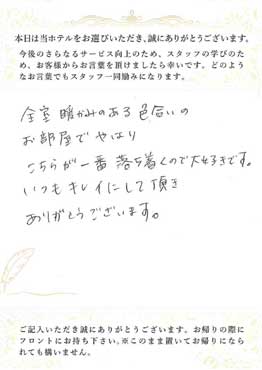 本日は当ホテルをお選びいただき、誠にありがとうございます。
今後のさらなるサービス向上のため、スタッフの学びのた
め、お客様からお言葉を頂けましたら幸いです。どのよう
なお言葉でもスタッフ一同励みになります。
全室暖かみのある色合いの
お部屋で やはり
こちらが一番落ち着くので大好きです。
いつもキレイにして頂き
ありがとうございます。
ご記入いただき誠にありがとうございます。お帰りの際に
フロントにお持ち下さい。※このまま置いてお帰りになら
れても構いません。